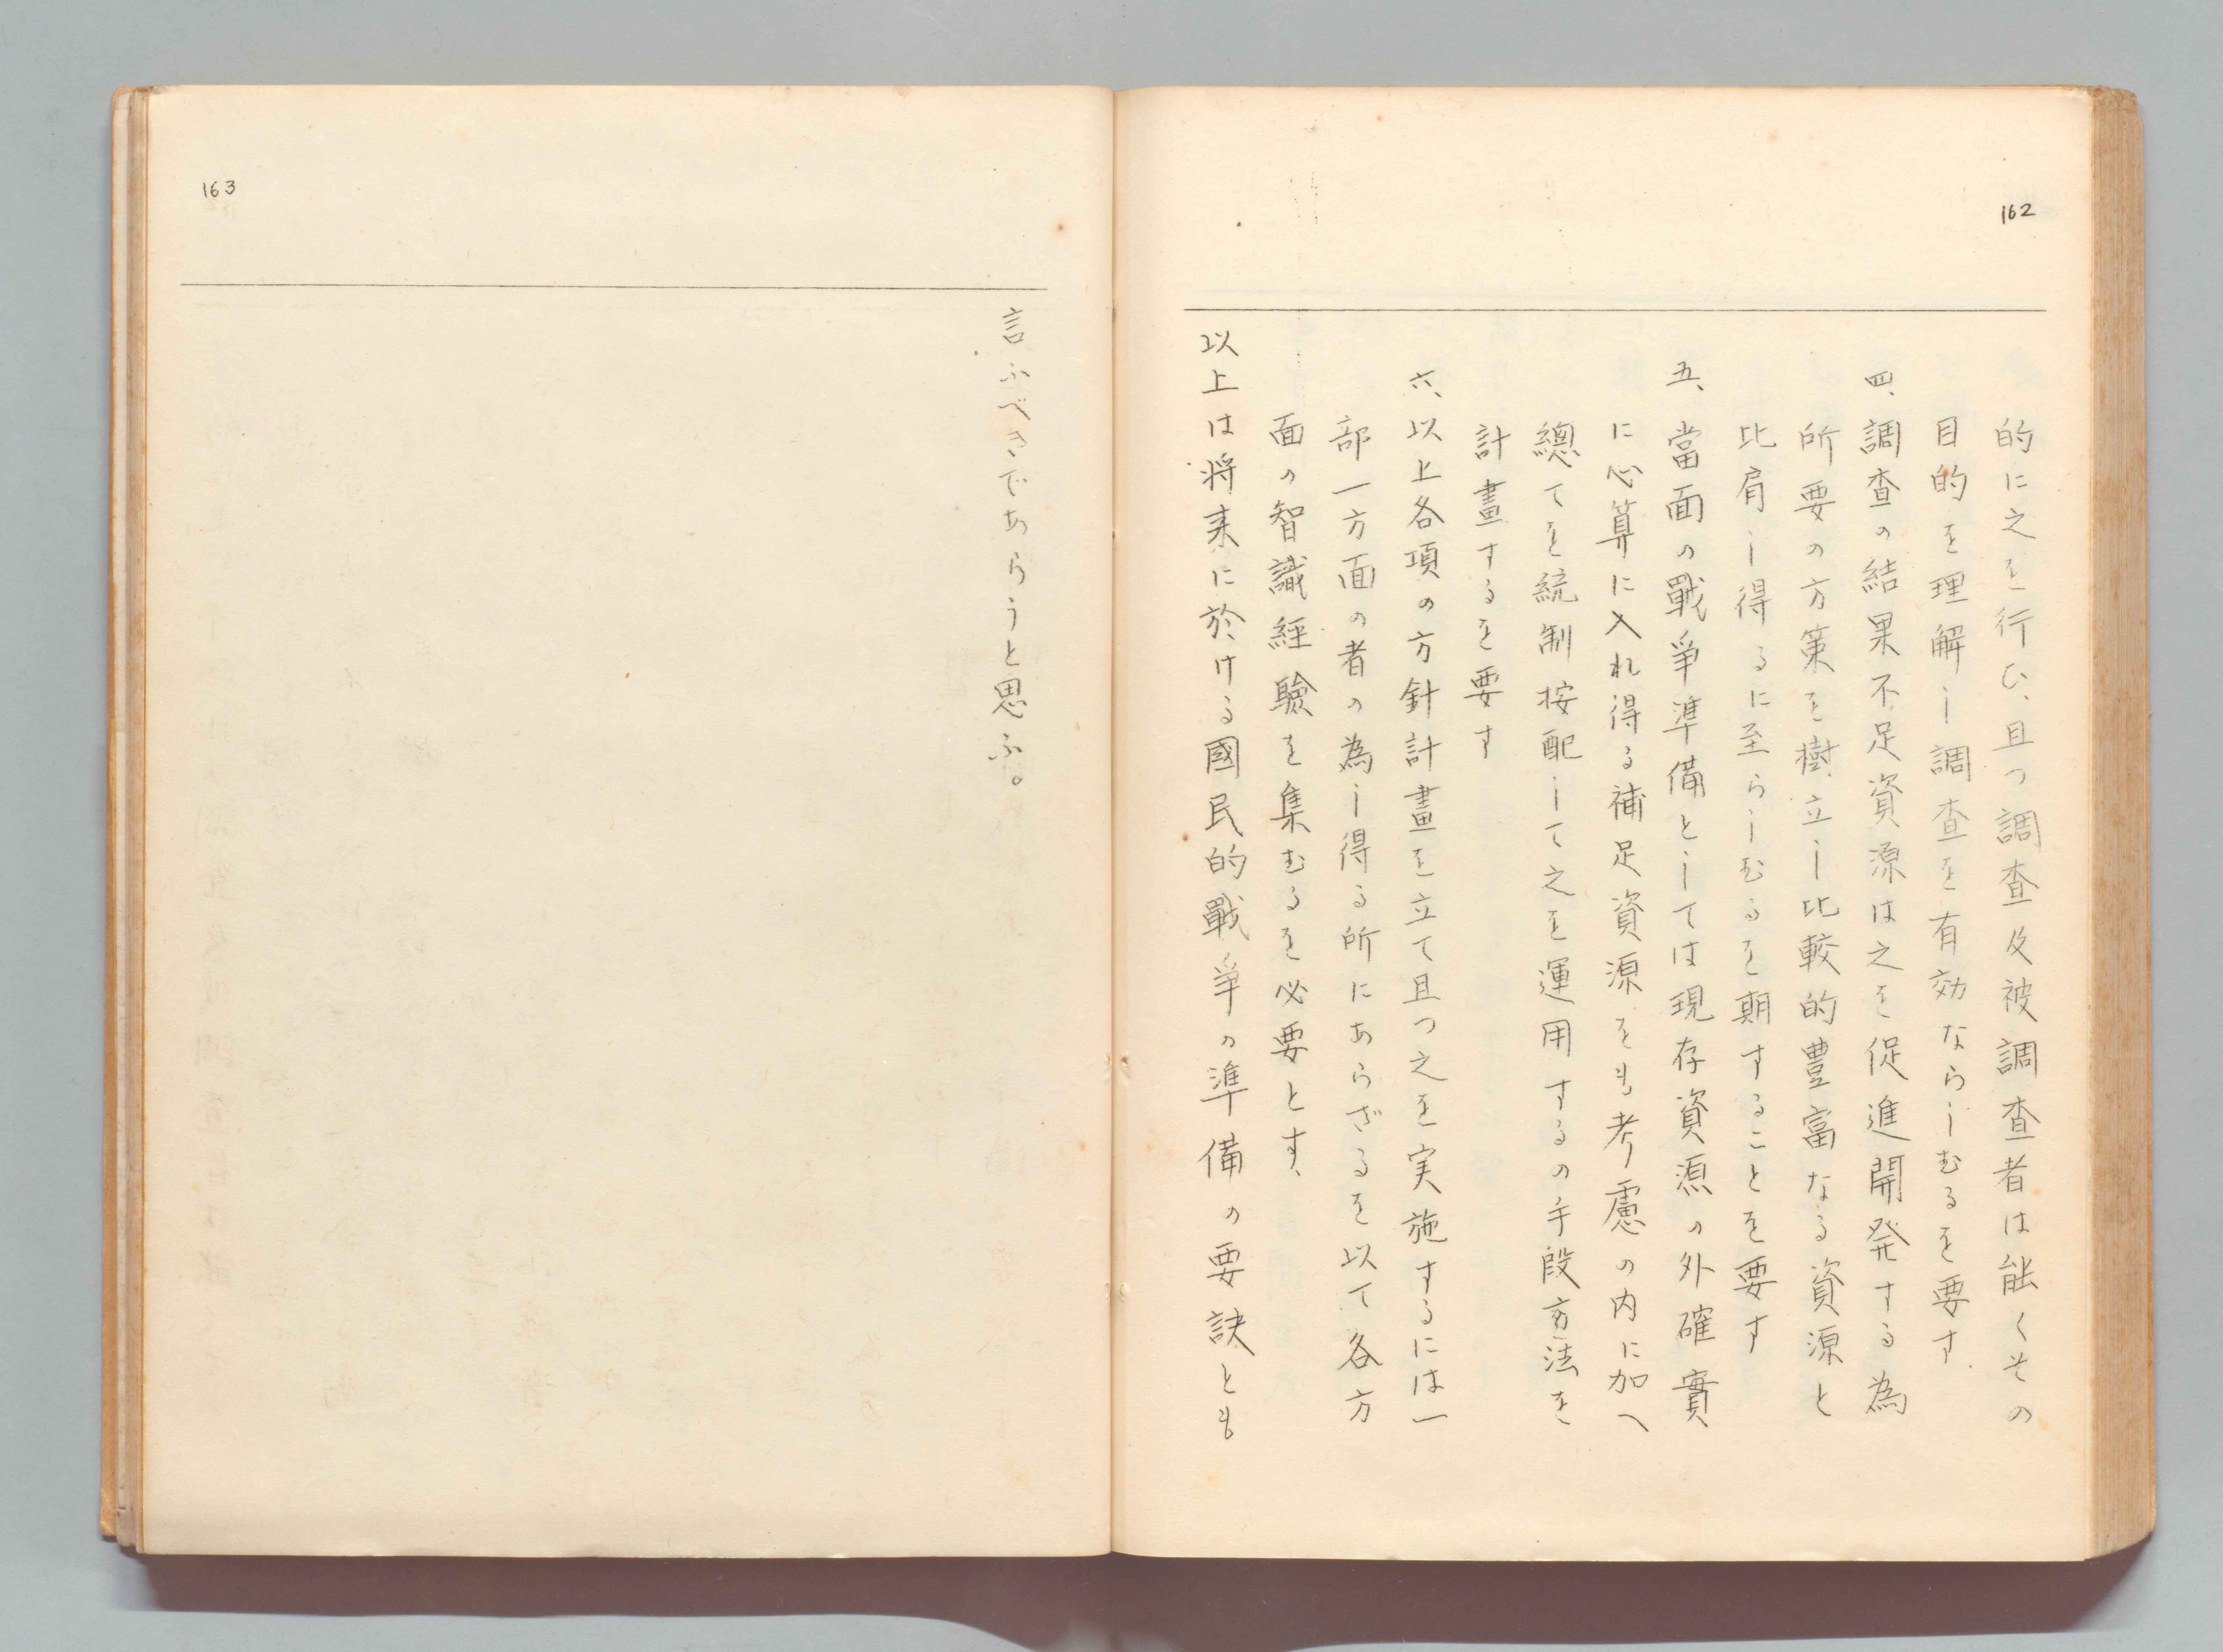 162
的に之を行ひ、且つ調査及被調査者は能くその
目的を理解し調査を有効ならしむるを要す
四、調査の結果不足資源は之を促進開発する為
所要の方策を樹立し比較的豊富なる資源と
比肩し得るに至らしむるを期することを要す
五、當面の戰爭準備としては現存資源の外確實
に心算に入れ得る補足資源をも考慮の内に加へ
總てを統制按配して之を運用するの手段方法を
計畫するを要す
六、以上各項の方針計畫を立て且つ之を実施するには一
部一方面の者の為し得る所にあらざるを以て各方
面の智識經驗を集むるを必要とす、
以上は将来に於ける國民的戰爭の準備の要訣とも
163
言ふべきであらうと思ふ。